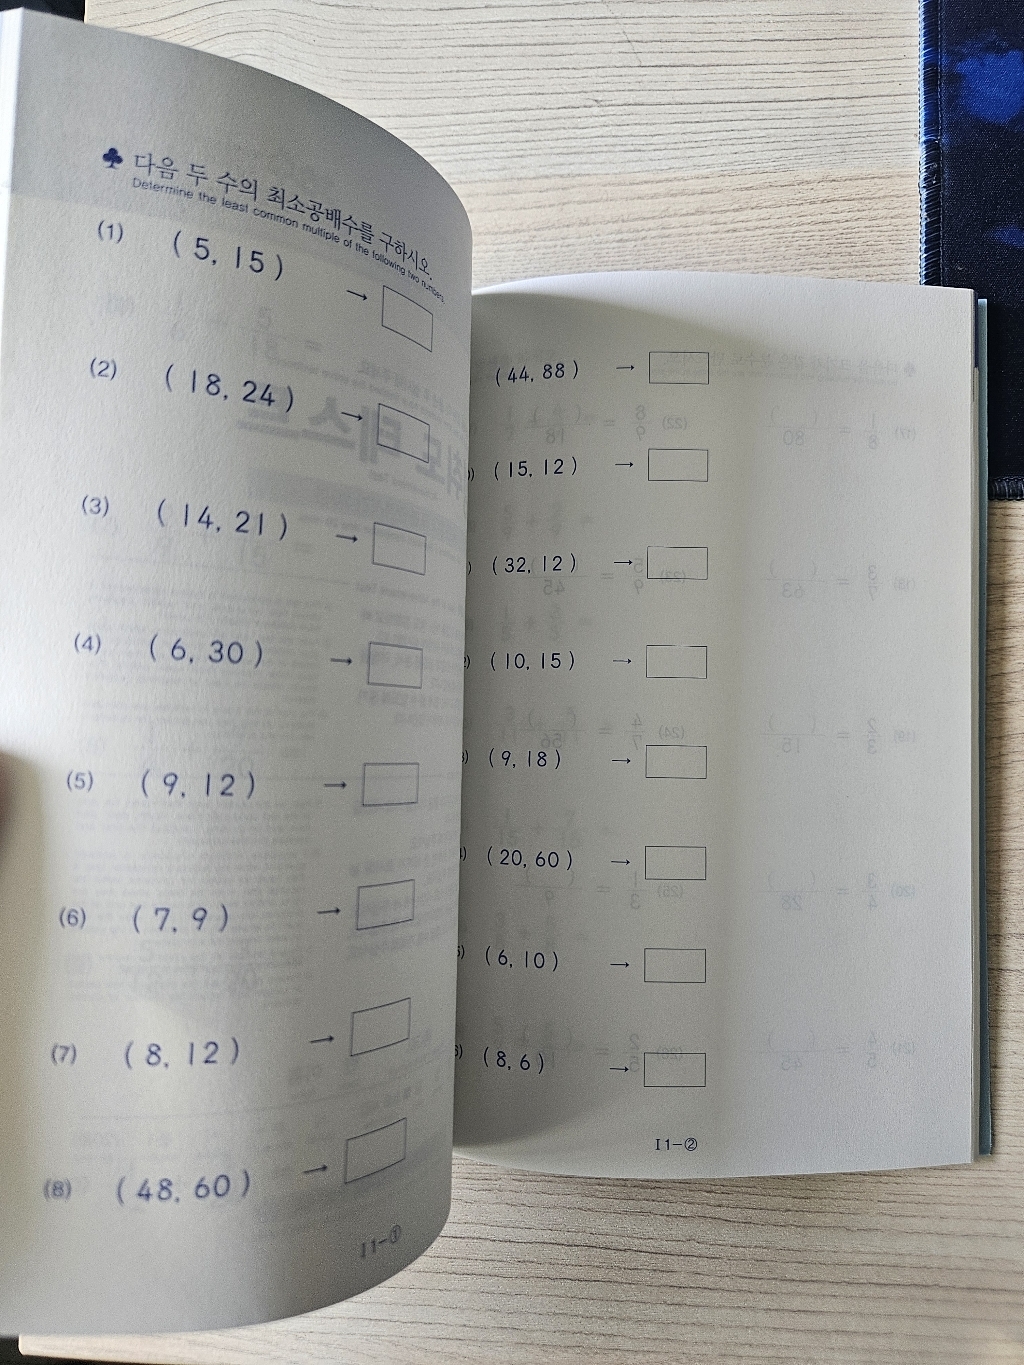 ♣ 다음 두 수의 최소공배수를 구하시오.
Determine the least common multiple of the following two numbers.
(1) ( 5, 15 ) →
(2) ( 18, 24 ) →
(3) ( 14, 21 ) →
(4) ( 6, 30 ) →
(5) ( 9, 12 ) →
(6) ( 7, 9 ) →
(7) ( 8, 12 ) →
(8) ( 48, 60 ) →
I 1-①
( 44, 88 ) →
( 15, 12 ) →
( 32, 12 ) →
( 10, 15 ) →
( 9, 18 ) →
( 20, 60 ) →
( 6, 10 ) →
( 8, 6 ) →
I 1-②